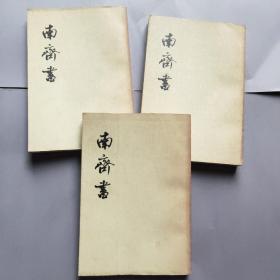 南齊書
南齊書
南齊書